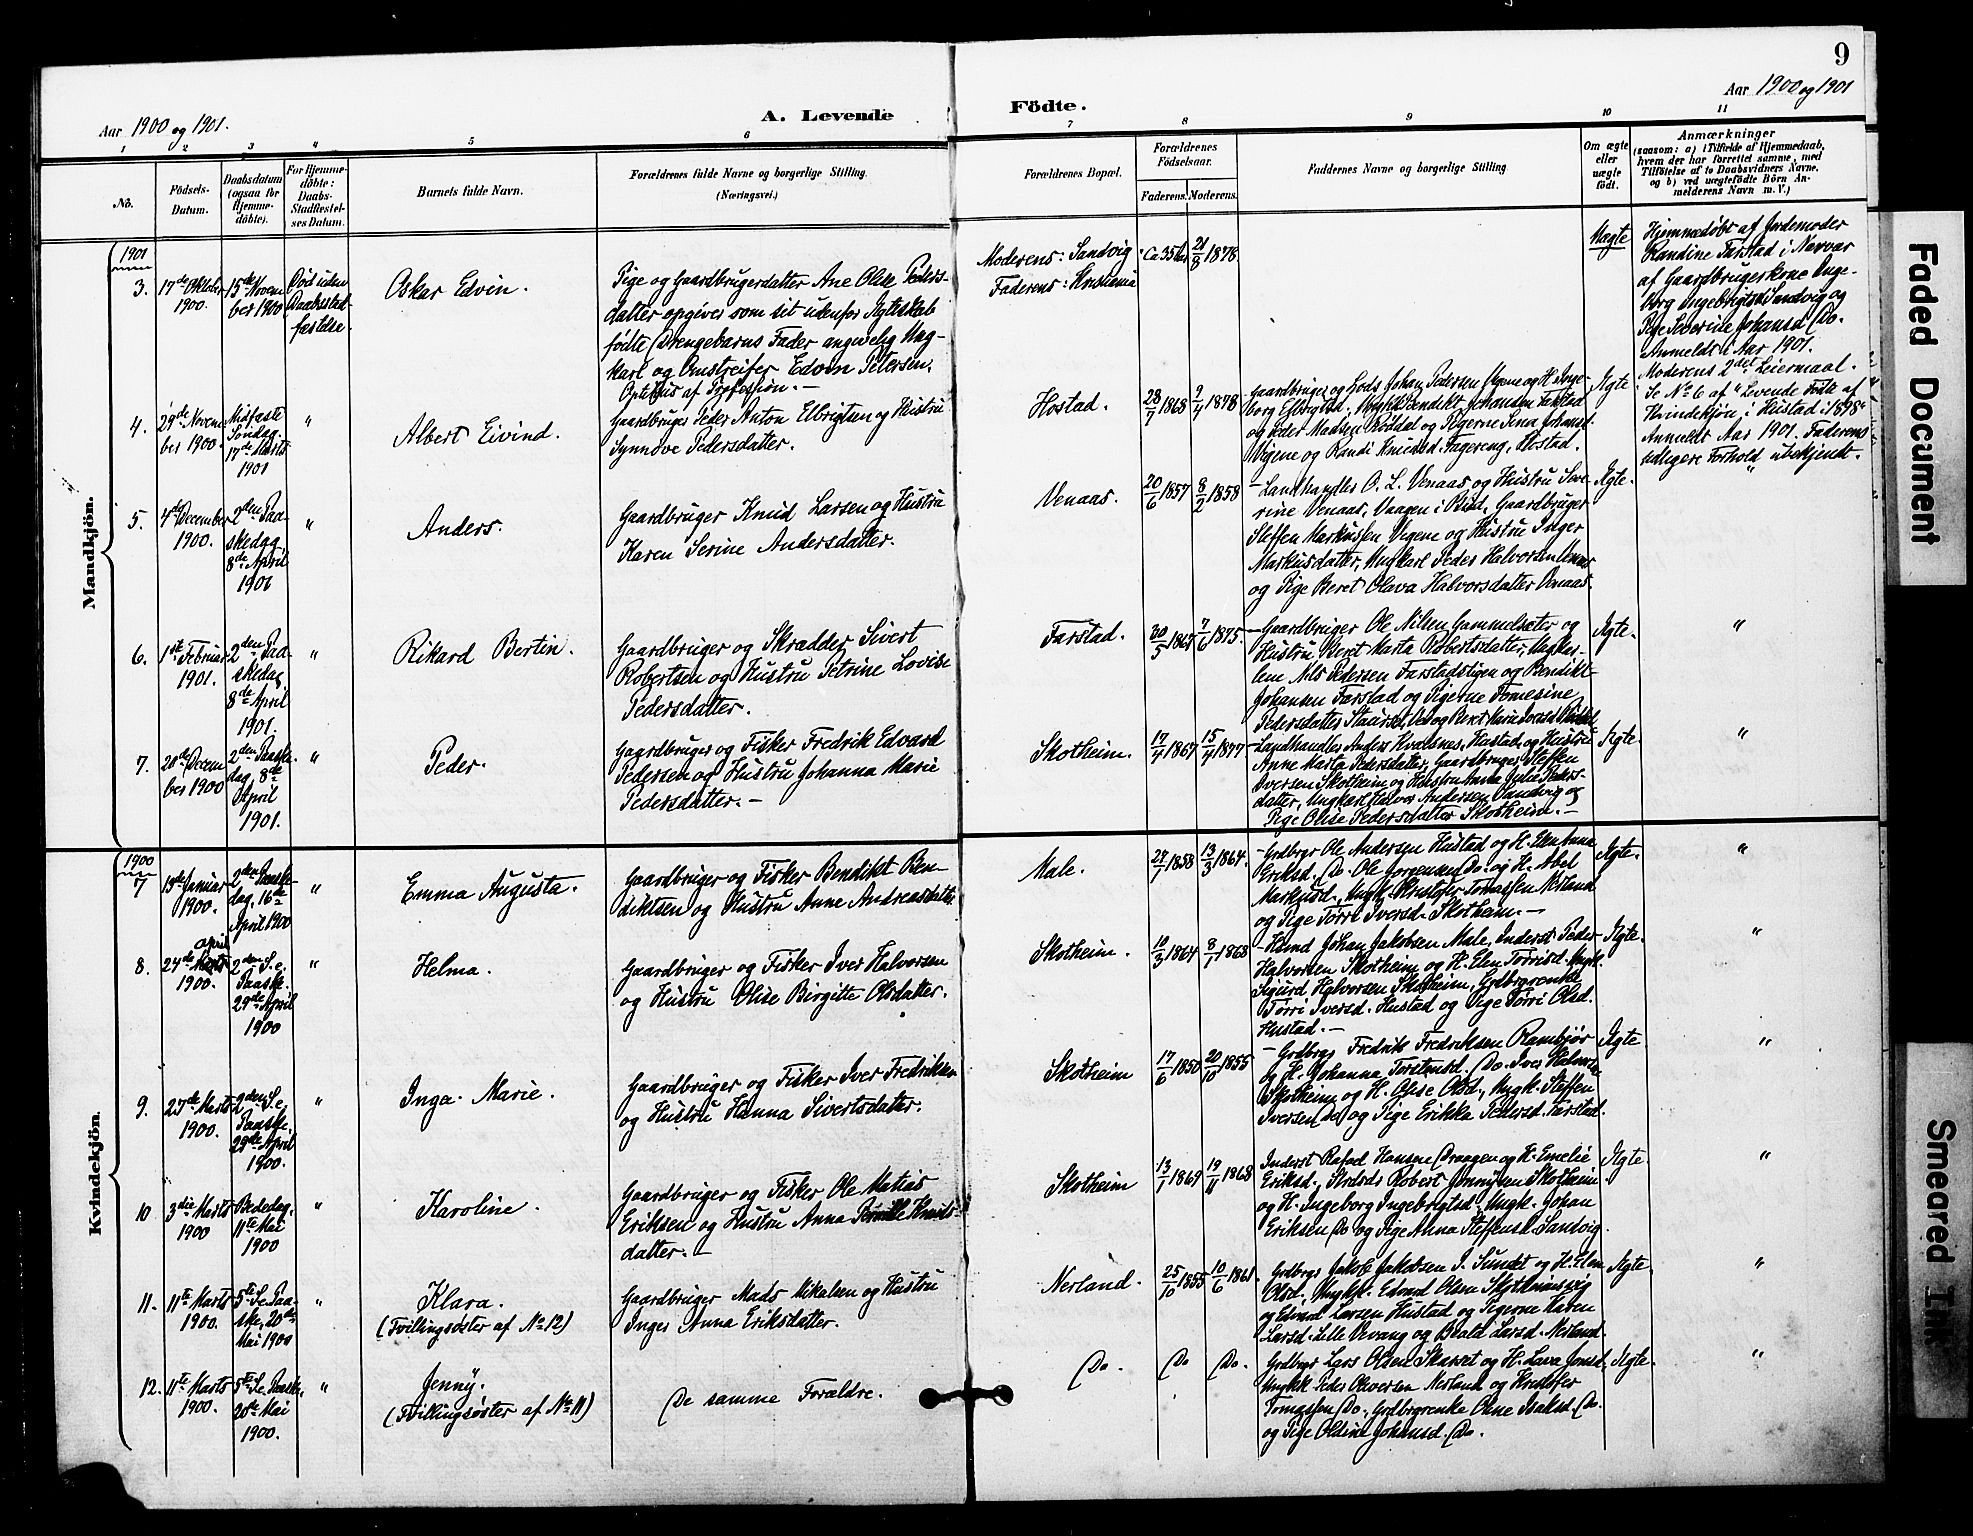 9
Aar 1900 og 1901.
A. Levende
Födte.
Aar 1900 og 1901
1 2 3 4 5 6 7 8 9 10 11
No.
Födsels-
Datum.
Daabsdatum
(ogsaa for
Hjemme-
döbte).
For Hjemme-
döbte:
Daabs-
Stadfæstel-
ses Datum.
Barnets fulde Navn.
Forældrenes fulde Navne og borgerlige Stilling.
(Næringsvei.)
Forældrenes Bopæl.
Forældrenes
Födselsaar.
Faderens. Moderens.
Faddernes Navne og borgerlige Stilling
Om ægte
eller
uægte
født.
Anmærkninger
(saasom: a) i Tilfælde af Hjemmedaab,
hvem der har forrettet samme, med
Tilföielse af to Daabsvidners Navne.
og b) ved uægtefödte Börn An-
melderens Navn m. V.)
Mandkjön.
1901
3.
17de Oktober
1900.
15de Novem
ber 1900
Død uden
Daabsstad
fæstelse.
Oskar Edvin.
Pige og Gaardbrugerdatter Ane Olise Peders-
datter opgiver som sit udenfor Ægteskab
fødte Drengebarns Fader angivelig Ung-
karl og Omstreifer Edvin Petersen,
Optikus af Profession. —
Moderens: Sandvig
Faderens: Kristiania
Ca 35 Aar
21/8 1878.
Uægte
Hjemmedøbt af Jordemoder
Randine Farstad i Nærvær
af Gaardbrugerkone Inge-
borg Ingebrigtsd Sandvig og
Pige Severine Johansd Do.
Anmeldt i Aar 1901.
Moderens 2det Leiermaal.
Se No 6 af "Levende Fødte af
Kvindekjøn i Hustad i 1898"
Anmeldt Aar 1901. Faderens
udligere Forhold ubekjendt.
4.
29de Novem
ber 1900.
Midfaste
Søndag
17de Marts
1901
"
Albert Eivind.
Gaardbruger Peder Anton Elbrigtsen og Hustru
Synnøve Pedersdatter.
Hostad.
28/7 1868
2/4 1878
Gaardbruger og Lods Johan Pedersen Vigene og H. Inge-
borg Elbrgtsd., Ungk. Bendikt Johansen Farstad
og Peder Madsen Bøddal og Pigerne Sina Johansd.
Vigene og Randi Knudsd. Fagereng, Hostad.
Ægte
"
5.
4de December
1900.
2den Paa-
skedag
8de April
1901
"
Anders.
Gaardbruger Knud Larsen og Hustru
Karen Serine Andersdatter.
Venaas.
20/6 1857
8/2 1858
— Landhandler O. L. Venaas og Hustru Seve-
rine Venaas, Vaagen i Bud, Gaardbruger
Steffen Markussen Vigene og Hustru Inger
Markusdatter, Ungkarl Peder Halvorsen Venaas
og Pige Beret Olava Halvorsdatter Venaas.
Ægte.
6.
1ste Februar
1901.
2den Paa-
skedag
8de April
1901.
"
Rikard Bertin.
Gaardbruger og Skrædder Sivert
Robertsen og Hustru Petrine Lovise
Pedersdatter.
Farstad.
30/5 1867
7/6 1875
— Gaardbruger Ole Nilsen Gammelsæter og
Hustru Beret Marta Robertsdatter, Ungkar-
lene Nils Pedersen Farstadstigen og Bendikt
Johansen Farstad og Pigerne Tomesine
Pedersdatter og Beret Marie
Ægte.
"
7.
20de Decem
ber 1900
2den Paaske
dag, 8de
April
1901.
"
Peder.
Gaardbruger og Fisker Fredrik Edvard
Pedersen og Hustru Johanna Marie
Pedersdatter. —
Skotheim.
17/4 1867
15/4 1877
— Landhandler Anders Kvalsnes, Hustad, og Hustru
Anne Marta Pedersdatter, Gaardbruger Steffen
Iversen Skotheim og Hustru Anna Julie Peders-
datter, Ungkarl Halvor Andersen Sandvig og
Pige Olise Pedersdatter Skotheim. —
Ægte.
"
Kvindekjön.
1900
7
15de Januar
1900.
2den Paaske-
dag, 16de
April 1900
"
Emma Augusta.
Gaardbruger og Fisker Bendikt Ben-
diktsen og Hustru Anne Andreasdatter
Male.
27/1 1858
13/3 1864.
— Grdbrgr Ole Andersen Hustad og H. Elen Anna
Eriksd., Do. Ole Jørgensen Do. og H. Abel
Markusd., Ungk. Kristofer Tomassen Nerland
og Pige Tørri Iversd. Skotheim. —
Ægte.
"
8.
april
24de Marts
1900.
2den S. e.
Paaske.
29de April
1900
"
Helma.
Gaardbruger og Fisker Iver Halvorsen
og Hustru Olise Birgitte Olsdatter.
Skotheim.
10/3 1864
8/1 1868
— Husmd Johan Jakobsen Male, Inderst Peder
Halvorsen Skotheim og H. Elen Tørrisd. Ungk.
Sigurd Halvorsen Skotheim, Grdbrgrenke
Tørri Iversd. Hustad og Pige Tørri Olsd.
Hustad. —
Ægte.
"
9.
27de Marts
1900.
2den S. e.
Paaske,
29de April
1900.
"
Inga. Marie.
Gaardbruger og Fisker Iver Fredriksen
og Hustru Hanna Sivertsdatter.
Skotheim
17/6 1850
20/10 1855
— Grdbrgr Fredrik Fredriksen Rambjør
og H. Johanna Torstensd. Do. Iver Halvorsen
Skotheim og H. Olise Olsd., Ungk. Steffen
Iversen Do og Pige Erikka Pedersd. Farstad.
Ægte
"
10
3die Marts
1900
Bededag,
11te Mai
1900
"
Karoline.
Gaardbruger og Fisker Ole Matias
Eriksen og Hustru Anna Pernille Knuds-
datter. —
Skotheim
13/1 1869
19/11 1868
Inderst Rafael Hansen Draagen og H. Emelie
Eriksd., Robert Jonnysen Skotheim
og H. Ingeborg Ingebrigtsd., Ungk. Johan
Eriksen Do og Pige Anna Steffensd. Sandvig.
Ægte.
"
11.
11te Marts
1900.
5te S. e. Paa-
ske, 20de
Mai 1900
"
Klara.
(Tvillingsøster af No 12)
Gaardbruger Mads Mikalsen og Hustru
Inger Anna Eriksdatter.
Nerland.
25/10 1855
10/6 1861.
Grdbrgr Jakob Jakobsen I. Sundet og H. Elen
Olsd., Ungk. Edvard Olsen Skotheimsvig
og Edvard Larsen Hustad og Pigerne Karen
Larsd. Lille Vevang og Beald Larsd. Nerland.
Ægte.
"
12.
11te Marts
1900.
5te S. e. Paaske,
20de Mai
1900.
"
Jenny.
(Tvillingsøster af No 11)
De samme Forældre.
Do.
Do
Do.
Grdbrgr Lars Olsen Skarset og H. Lava Jonsd.
Ungk. Peder Oliversen Nerland og Kristofer
Tomassen Do., Grdbrgrenke Ane Isaksd. Do.
og Pige Oldine Johansd. Do.
Ægte.
"
Faded Document
Smeared Ink